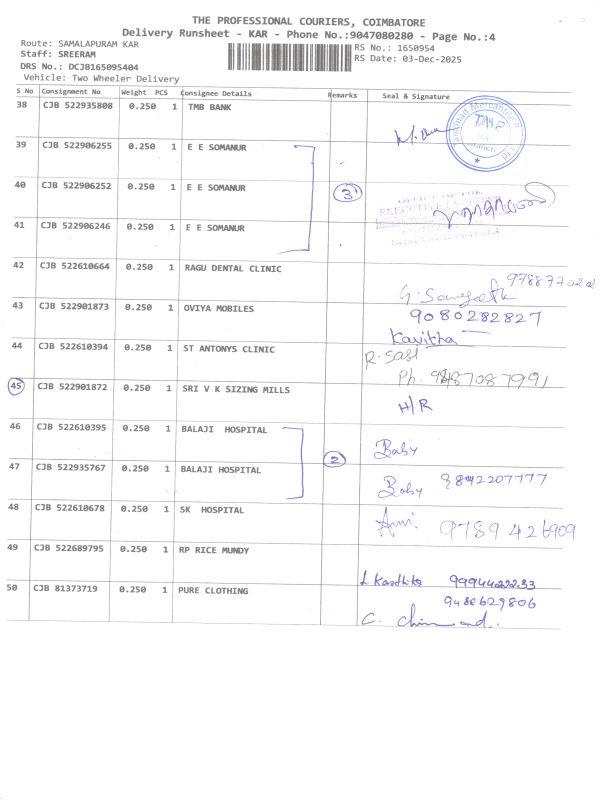 THE PROFESSIONAL COURIERS, COIMBATORE
Delivery Runsheet - KAR - Phone No.:9047080280 - Page No.:4
Route: SAMALAPURAM KAR
RS No.: 1650954
Staff: SREERAM
RS Date: 03-Dec-2025
DRS No.: DCJB165095404
Vehicle: Two Wheeler Delivery
S No Consignment No Weight PCS Consignee Details Remarks Seal & Signature
38 CJB 522935808 0.250 1 TMB BANK
39 CJB 522906255 0.250 1 E E SOMANUR
40 CJB 522906252 0.250 1 E E SOMANUR 3
41 CJB 522906246 0.250 1 E E SOMANUR
42 CJB 522610664 0.250 1 RAGU DENTAL CLINIC
43 CJB 522901873 0.250 1 OVIYA MOBILES 9080282827
Kavitha
44 CJB 522610394 0.250 1 ST ANTONYS CLINIC R. Sasi
45 CJB 522901872 0.250 1 SRI V K SIZING MILLS
H/R
46 CJB 522610395 0.250 1 BALAJI HOSPITAL
Baby
2
47 CJB 522935767 0.250 1 BALAJI HOSPITAL
Baby 9842207777
48 CJB 522610678 0.250 1 SK HOSPITAL
9789426909
49 CJB 522689795 0.250 1 RP RICE MUNDY
50 CJB 81373719 0.250 1 PURE CLOTHING